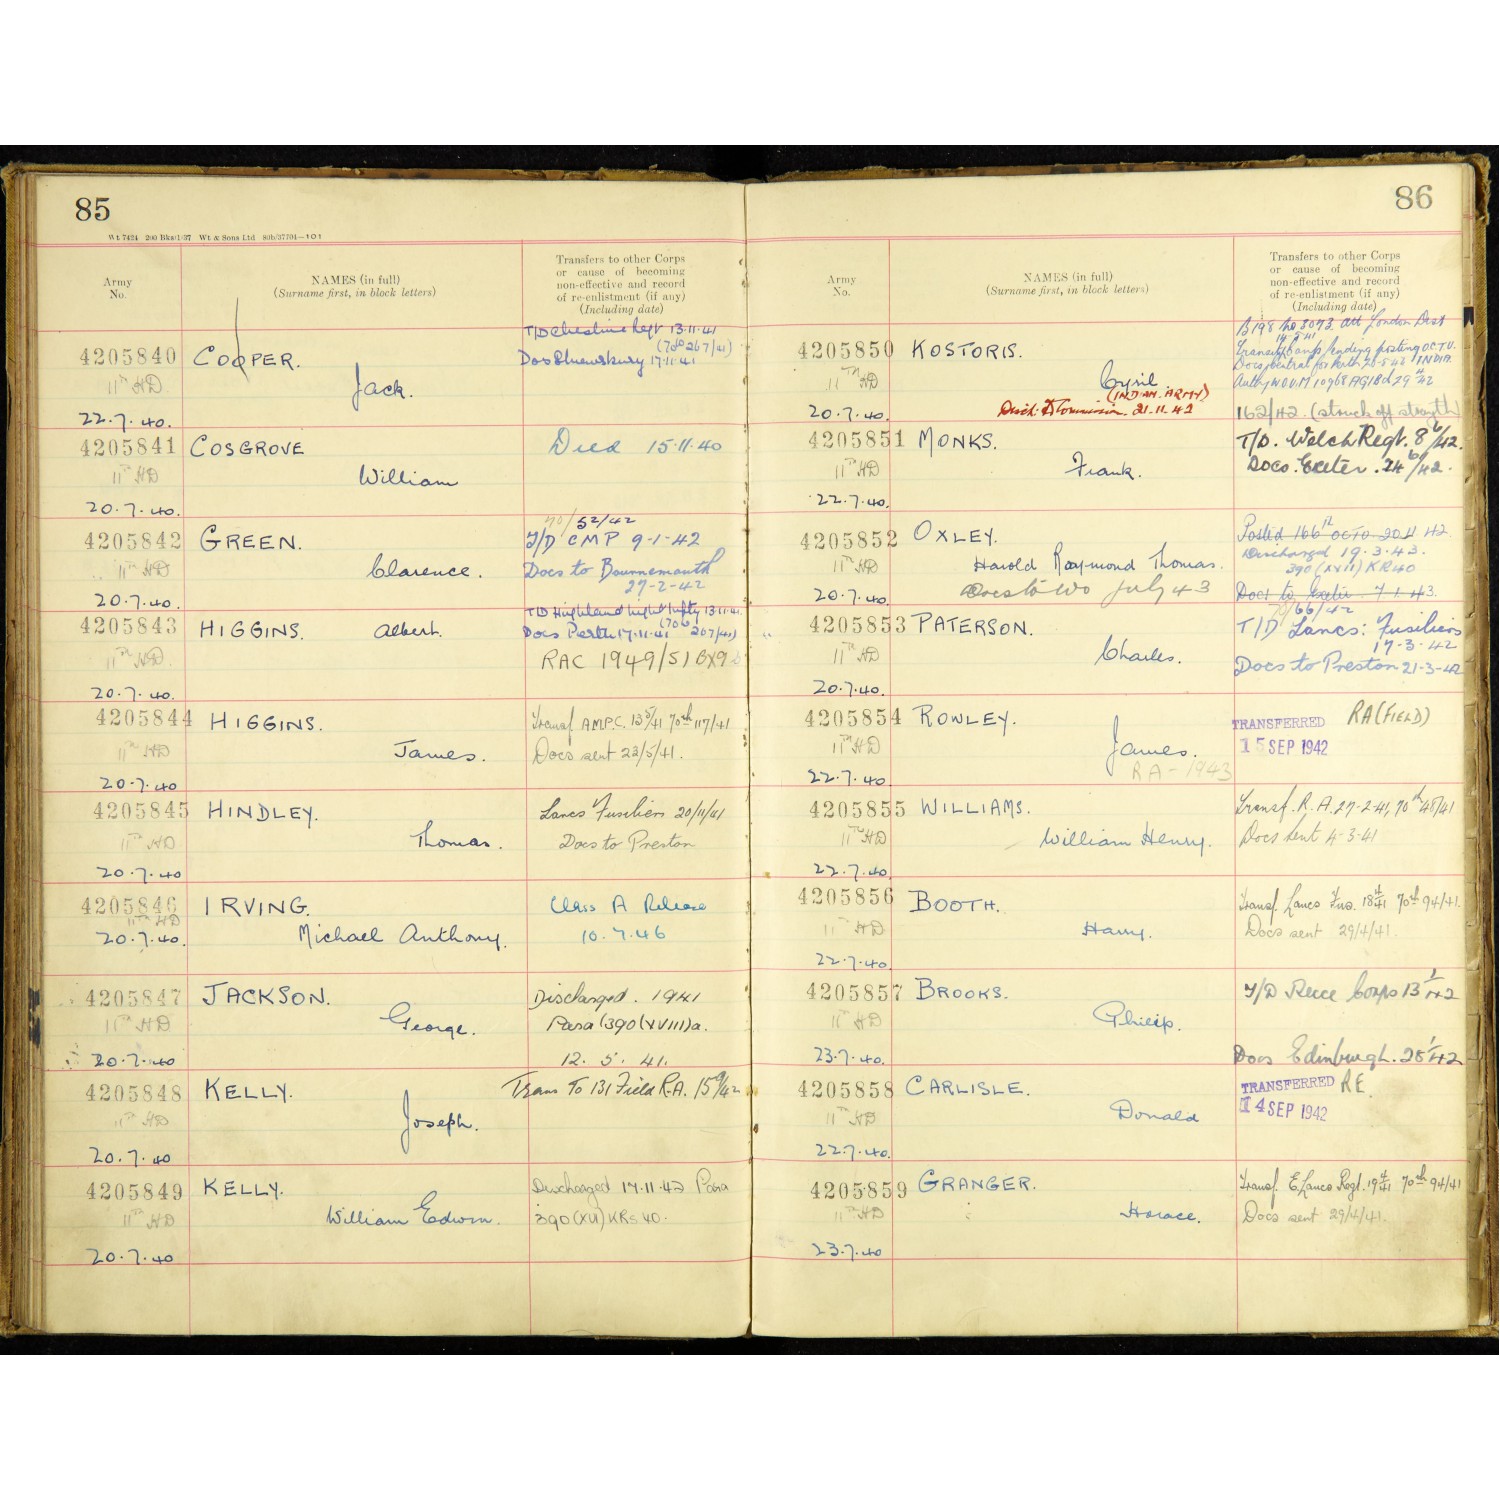 85
Wt 7424 200 Bks/1/37 Wt & Sons Ltd
Army
No.
NAMES (in full)
(Surname first, in block letters)
Transfers to other Corps
or cause of becoming
non-effective and record
of re-enlistment (if any)
(Including date)
4205840 COOPER.
T/D Cheshire Regt 13.11.41
Docs Shrewsbury 17.11.41
11TH HD
Jack.
22.7.40.
4205841 COSGROVE
Died 15.11.40
11TH HD
William
20.7.40.
70/52/42
4205842 GREEN.
T/D CMP 9-1-42
11TH HD
Clarence.
Docs to Bournemouth
27-2-42
20.7.40.
T/D Highland Light Infty 13.11.41
4205843 HIGGINS. Albert.
Docs Perth 17.11.41 207/41)
11TH HD
RAC 1949/51
20.7.40.
4205844 HIGGINS.
Transf A.M.P.C. 13 5/41 70th 117/41
11TH HD
James.
Docs sent 23/5/41.
20.7.40
4205845 HINDLEY.
Lancs Fusiliers 20/11/41
11TH HD
Thomas.
Docs to Preston
20.7.40
4205846 IRVING.
Class A Release
11TH HD
20.7.40. Michael Anthony.
10.7.46
4205847 JACKSON.
Discharged. 1941
11TH HD
George.
Para (390(XVIII)a.
20.7.40
12. 5. 41.
4205848 KELLY.
Trans To 131 Field R.A. 15 9/42
11TH HD
Joseph.
20.7.40
4205849 KELLY.
Discharged 17.11.42 Para
11TH HD
William Edwin.
390(XVI) KRs 40.
20.7.40
86
Army
No.
NAMES (in full)
(Surname first, in block letters)
Transfers to other Corps
or cause of becoming
non-effective and record
of re-enlistment (if any)
(Including date)
B198 No 3073. att London Dist
4205850 KOSTORIS.
pending posting O.C.T.U.
11TH HD
Cyril
(INDIAN. ARMY)
20.7.40.
Disch. To Commission. 21.11.42
162/42. (struck off strength)
4205851 MONKS.
T/D. Welch Regt. 8 6/42.
11TH HD
Frank.
Docs. Exeter. 24 6/42.
22.7.40.
4205852 OXLEY.
Posted 166th OCTU 20.11.42
Discharged 19.3.43.
11TH HD
Harold Raymond Thomas.
390 (XVIII) KR40
20.7.40. Docs to WO July 43
Docs to Exeter 7.1.43.
70/66/42
4205853 PATERSON.
T/D Lancs: Fusiliers
17-3-42
11TH HD
Charles.
Docs to Preston 21-3-42
20.7.40.
4205854 ROWLEY.
TRANSFERRED RA(FIELD)
11TH HD
James.
15 SEP 1942
22.7.40.
RA - 1943
4205855 WILLIAMS.
Transf. R.A. 27-2-41, 70th 48/41
11TH HD
William Henry.
Docs sent 4-3-41
22.7.40.
4205856 BOOTH.
Transf. Lancs Fus. 18 4/41 70th 94/41.
11TH HD
Harry.
Docs sent 29/4/41.
22.7.40.
4205857 BROOKS.
T/D Recce Corps 13 1/42
11TH HD
Philip.
23.7.40.
Docs Edinburgh. 28 1/42
4205858 CARLISLE.
TRANSFERRED RE.
11TH HD
Donald
14 SEP 1942
22.7.40.
4205859 GRANGER.
Transf. E. Lancs Regt. 19 4/41 70th 94/41
11TH HD
Horace.
Docs sent 29/4/41.
23.7.40